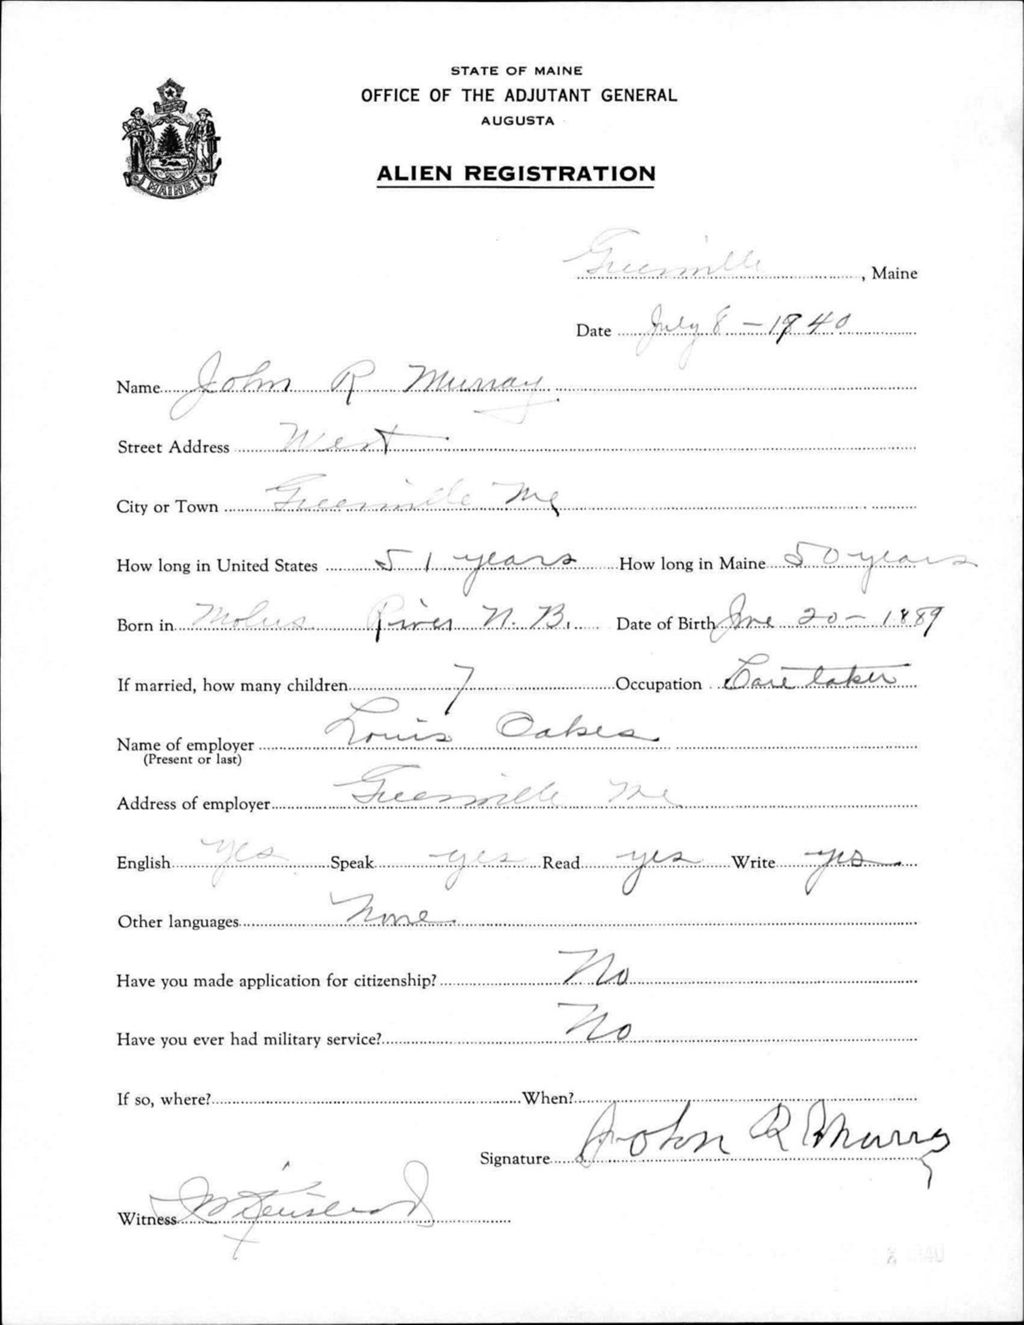 STATE OF MAINE
OFFICE OF THE ADJUTANT GENERAL
AUGUSTA
ALIEN REGISTRATION
MAINE
Greenville, Maine
Date July 8 - 1940
Name John R Murray
Street Address West
City or Town Greenville Me
How long in United States 51 years How long in Maine 50 years
Born in Molus River N. B. Date of Birth June 20 - 1889
If married, how many children 7 Occupation Caretaker
Name of employer Louis Oakes
(Present or last)
Address of employer Greenville Me
English yes Speak yes Read yes Write yes
Other languages None
Have you made application for citizenship? No
Have you ever had military service? No
If so, where? When?
Signature John R Murray
Witness